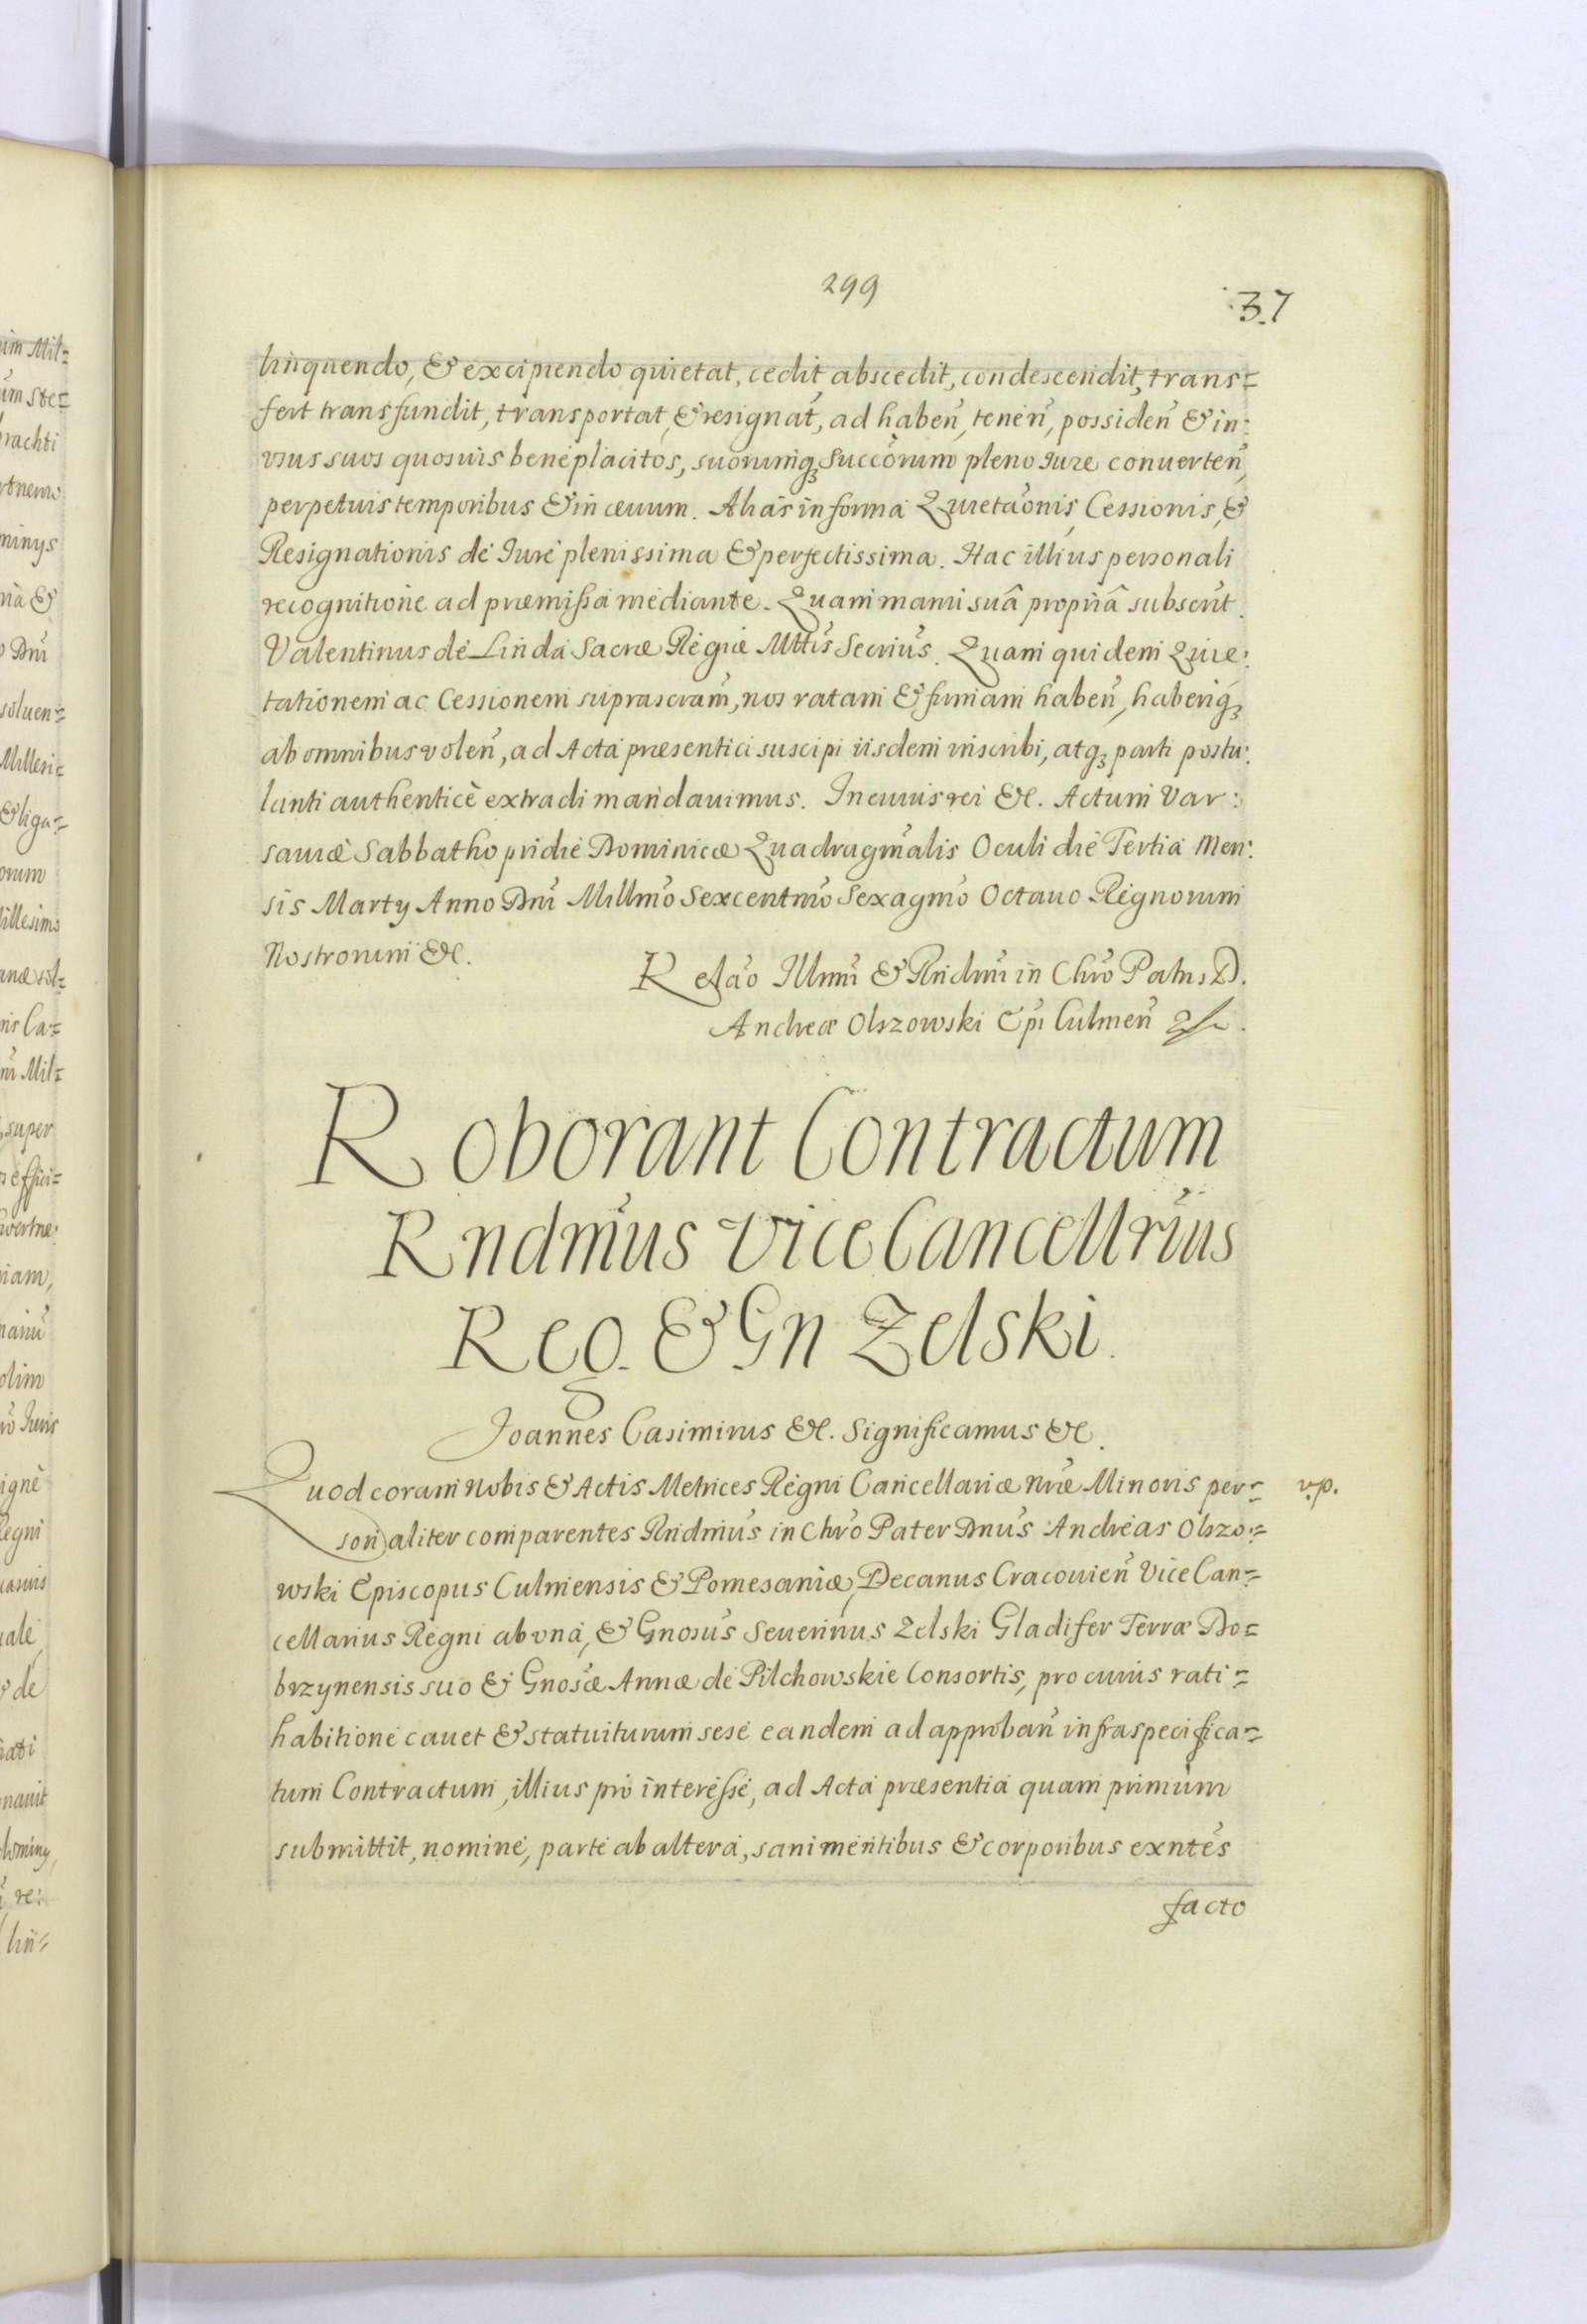 299
37
linquendo, & excipiendo quietat, cedit, abscedit, condescendit, trans=
fert transfundit, transportat, & resignat, ad haben̄, tenen̄, possiden̄ & in:
vsus suos quosuis beneplacitos, suorumq̃ Succōrum pleno Iure conuerten̄,
perpetuis temporibus & in æuum. Alias in forma Quietāonis, Cessionis, &
Resignationis de Iure plenissima & perfectissima. Hac illius personali
recognitione ad præmissa mediante. Quam manu suâ propriâ subscrt̄.
Valentinus de Linda Sacræ Regiæ Mttis Secrius. Quam quidem Quie:
tationem ac Cessionem suprascram̄, nos ratam & firmam haben̄, haberiq̃
ab omnibus volen̄, ad Acta præsentia suscipi iisdem inscribi, atq̃ parti postu:
lanti authenticè extradi mandauimus. In cuius rei &c. Actum Var:
sauiæ Sabbatho pridie Dominicæ Quadragm̄alis Oculi die Tertia Men:
sis Marty Anno Dn̄i Millmō Sexcentmō Sexagmō Octauo Regnorum
Nostrorum &c.
Relāo Illmi & Rndmi in Chrō Patris D.
Andreæ Olszowski Epī Culmen̄
Roborant Contractum
Rndmūs Vice Cancellriūs
Reg. & Gn Zelski.
Joannes Casimirus &c. Significamus &c.
Quod coram Nobis & Actis Metrices Regni Cancellariæ Nrǣ Minoris per=
v.p.
sonaliter comparentes Rndmūs in Chrō Pater Dnūs Andreas Olszo=
wski Episcopus Culmensis & Pomesaniæ, Decanus Cracouien̄ Vice Can=
cellarius Regni ab vna, & Gnosūs Seuerinus Zelski Gladifer Terræ Do=
brzynensis suo & Gnosǣ Annæ de Pilchowskie Consortis, pro cuius rati=
habitione cauet & statuiturum sese eandem ad approban̄ infraspecifica=
tum Contractum, illius pro interesse, ad Acta præsentia quam primum
submittit, nomine, parte ab altera, sani mentibus & corporibus exntēs
facto